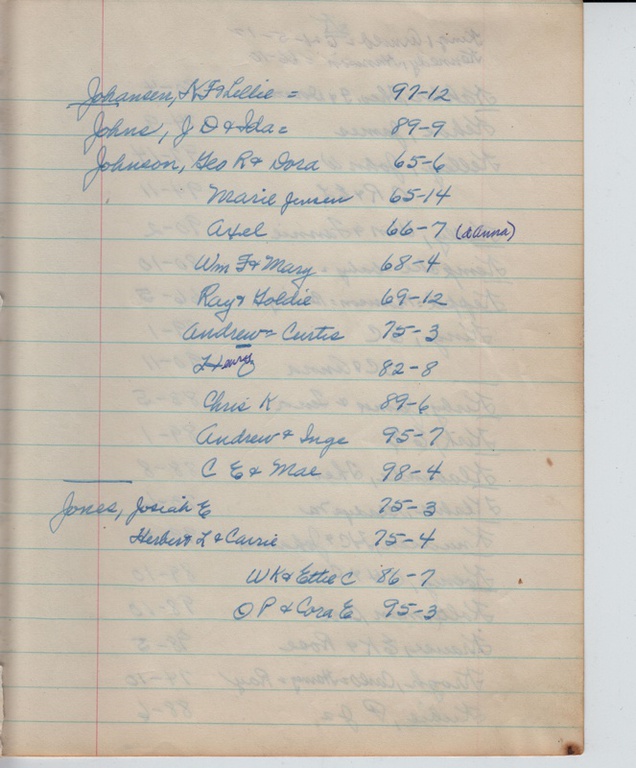 Johansen, N F & Lillie = 97-12
Johns, J D & Ida = 89-9
Johnson, Geo R & Dora 65-6
Marie Jensen 65-14
Axel 66-7 (& Anna)
Wm F & Mary 68-4
Ray & Goldie 69-12
Andrew = Curtis 75-3
Henry 82-8
Chris K 89-6
Andrew & Inge 95-7
C E & Mae 98-4
Jones, Josiah E 75-3
Herbert L & Carrie 75-4
W K & Ettie C 86-7
O P & Cora E 95-3